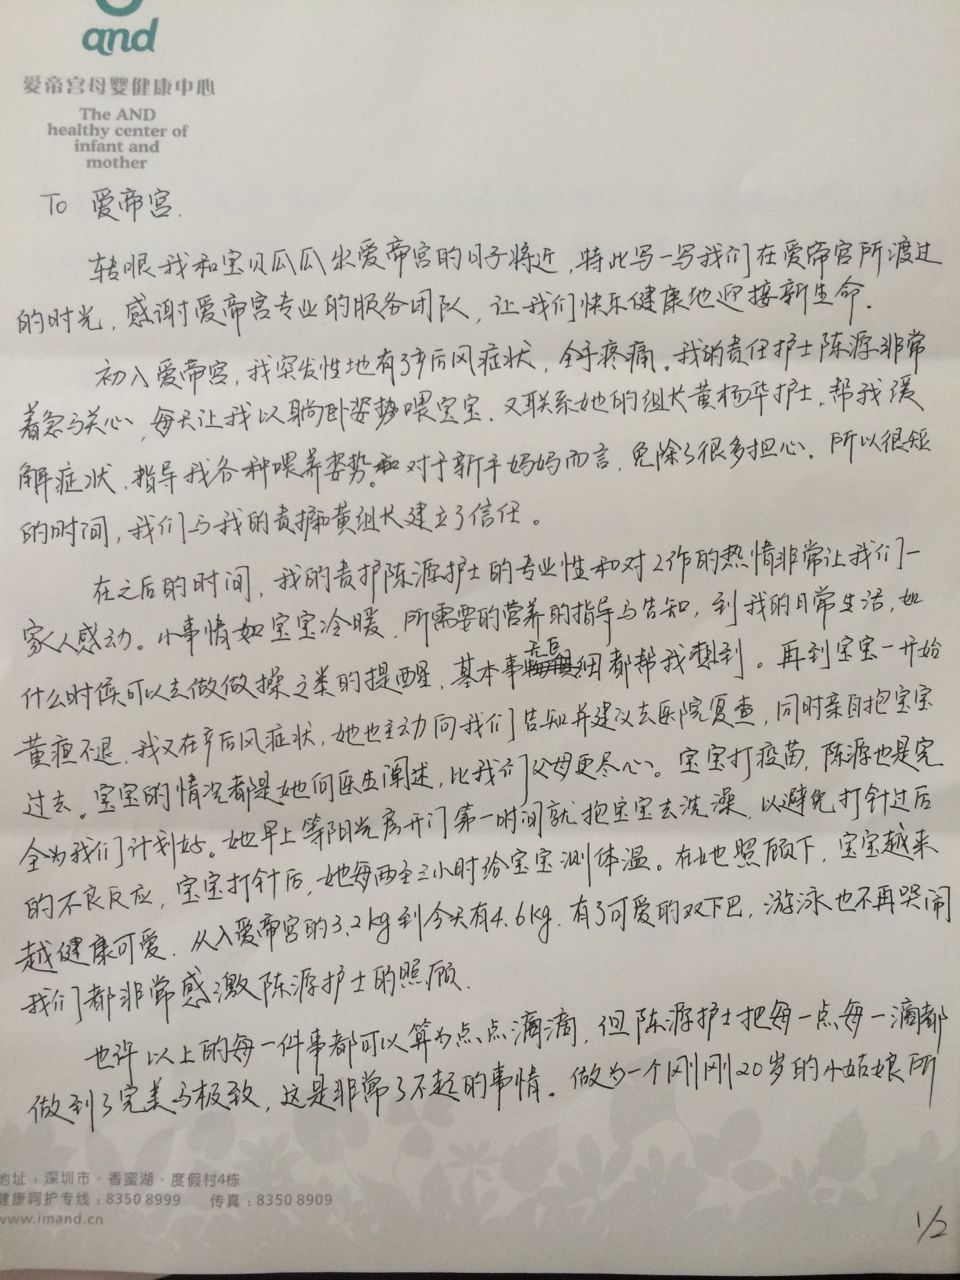 and
爱帝宫母婴健康中心
The AND
healthy center of
infant and
mother
To 爱帝宫.
转眼我和宝贝瓜瓜出爱帝宫的日子将近,特此写一写我们在爱帝宫所渡过
的时光,感谢爱帝宫专业的服务团队,让我们快乐健康地迎接新生命.
初入爱帝宫,我突发性地有了产后风症状,全手疼痛。我的责任护士陈源非常
着急与关心,每天让我以躺卧姿势喂宝宝.又联系她的组长黄杨华护士,帮我缓
解症状,指导我各种喂养姿势。对于新手妈妈而言,免除了很多担心.所以很短
的时间,我们与我的责护和黄组长建立了信任。
在之后的时间,我的责护陈源护士的专业性和对工作的热情非常让我们一
家人感动。小事情如宝宝冷暖,所需要的营养的指导与告知,到我的日常生活,如
什么时候可以去做做操之类的提醒,基本事无巨细都帮我想到。再到宝宝一开始
黄疸不退,我又在产后风症状,她也主动向我们告知并建议去医院复查,同时亲自抱宝宝
过去。宝宝的情况都是她向医生阐述,比我们父母更尽心。宝宝打疫苗,陈源也是完
全为我们计划好。她早上等阳光房开门第一时间就抱宝宝去洗澡,以避免打针过后
的不良反应,宝宝打针后,她每两至三小时给宝宝测体温。在她照顾下,宝宝越来
越健康可爱.从入爱帝宫的3.2kg到今天有4.6kg.有了可爱的双下巴,游泳也不再哭闹
我们都非常感激陈源护士的照顾.
也许以上的每一件事都可以算为点点滴滴,但陈源护士把每一点每一滴都
做到了完美与极致,这是非常了不起的事情。做为一个刚刚20岁的小姑娘所
地址:深圳市·香蜜湖·度假村4栋
健康呵护专线:8350 8999 传真:8350 8909
www.imand.cn
1/2